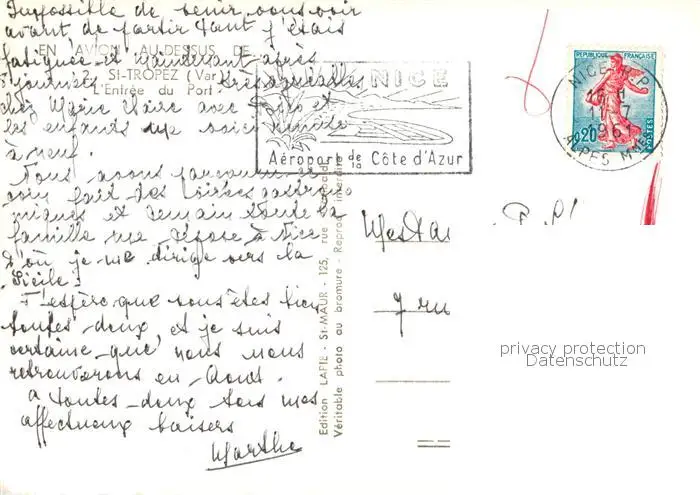 Impossible de venir vous voir
avant de partir tant j'étais
fatiguée et maintenant après
EN AVION AU-DESSUS DE
journées très agréables
ST-TROPEZ (Var)
L'Entrée du Port
chez Marie Claire avec et
les enfants me voici
à neuf.
Nous avons parcouru ce
coin fait des virées gastrono
miques et demain toute la
famille me dépose à Nice
d'où je me dirige vers la
Sicile.
J'espère que vous êtes bien
toutes deux, et je suis
certaine que nous nous
retrouverons en Août.
à toutes deux tous mes
affectueux baisers
Marthe
NICE
Aéroport de la Côte d'Azur
Edition LAPIE - St-MAUR - 125, rue
Véritable photo au bromure - Reproduction interdite
REPUBLIQUE FRANÇAISE
0,20
POSTES
NICE R.P.
18 H
11-7
1961
ALPES MMES
Mesda
7 ru
privacy protection
Datenschutz